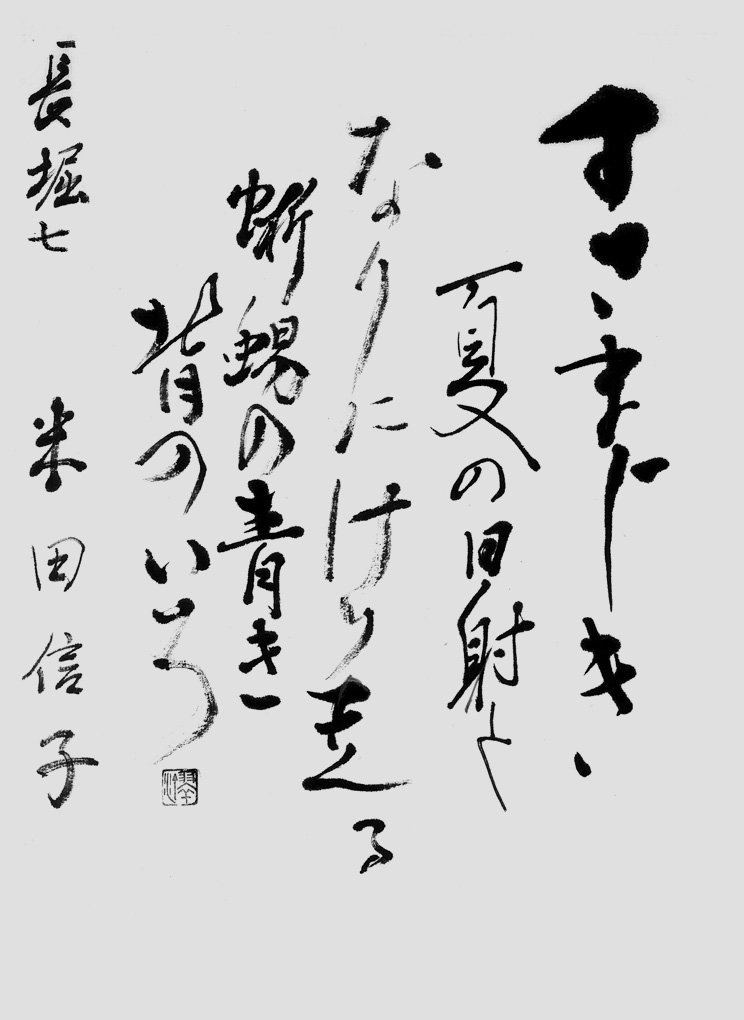 すさまじき
夏の日射と
なりにけり走る
蜥蜴の青き
背のいろ
長堀七 米田信子